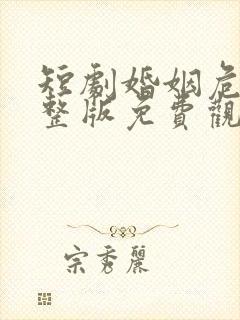 短劇婚姻危
整版免費觀
宗秀麗